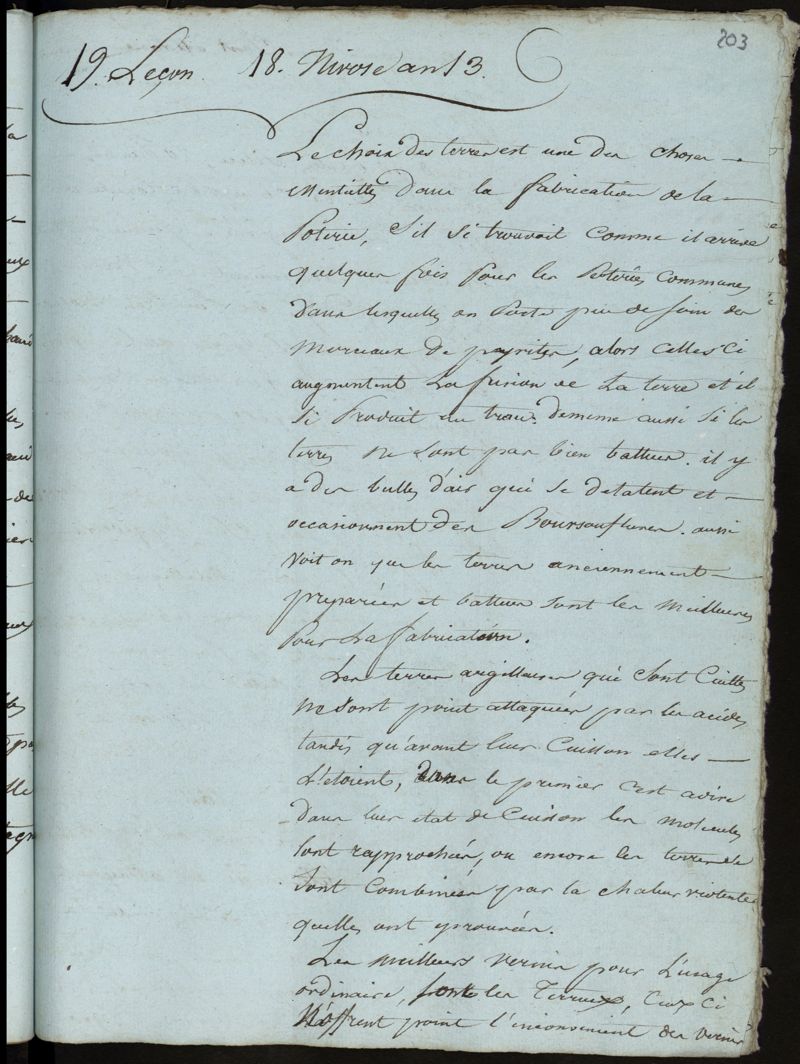 203
19. Leçon. 18. Nivose an 13.
Le choix des terres est une des choses
essentielles dans la fabrication de la
Poterie, s'il si trouvoit comme il arrive
quelques fois Pour les Poteries communes
dans lesquelles on Porte peu de soin des
morceaux de pyrites, alors celles ci
augmentent La fusion de La terre et il
si Produit un trou. demême aussi si les
terres ne sont pas bien battues. il y
a des bulles d'air qui se detatent et
occasionnent des Boursouflures. aussi
voit on que les terres anciennement
preparées et battues sont les meilleures
Pour La fabrication.
Les terres argilleuses qui sont Cuittes
ne sont point attaquées par les acides
tandis qu'avant leur Cuisson elles
L'étoient, dans le premier c'est adire
dans leur etat de Cuisson les molecules
sont rapprochées, ou encore les terres se
sont Combinées par la chaleur violente
quelles ont eprouvées.
Les meilleurs vernis pour L'usage
ordinaire, sont les Terreux, Ceux ci
N'offrent point l'inconvenient des vernis